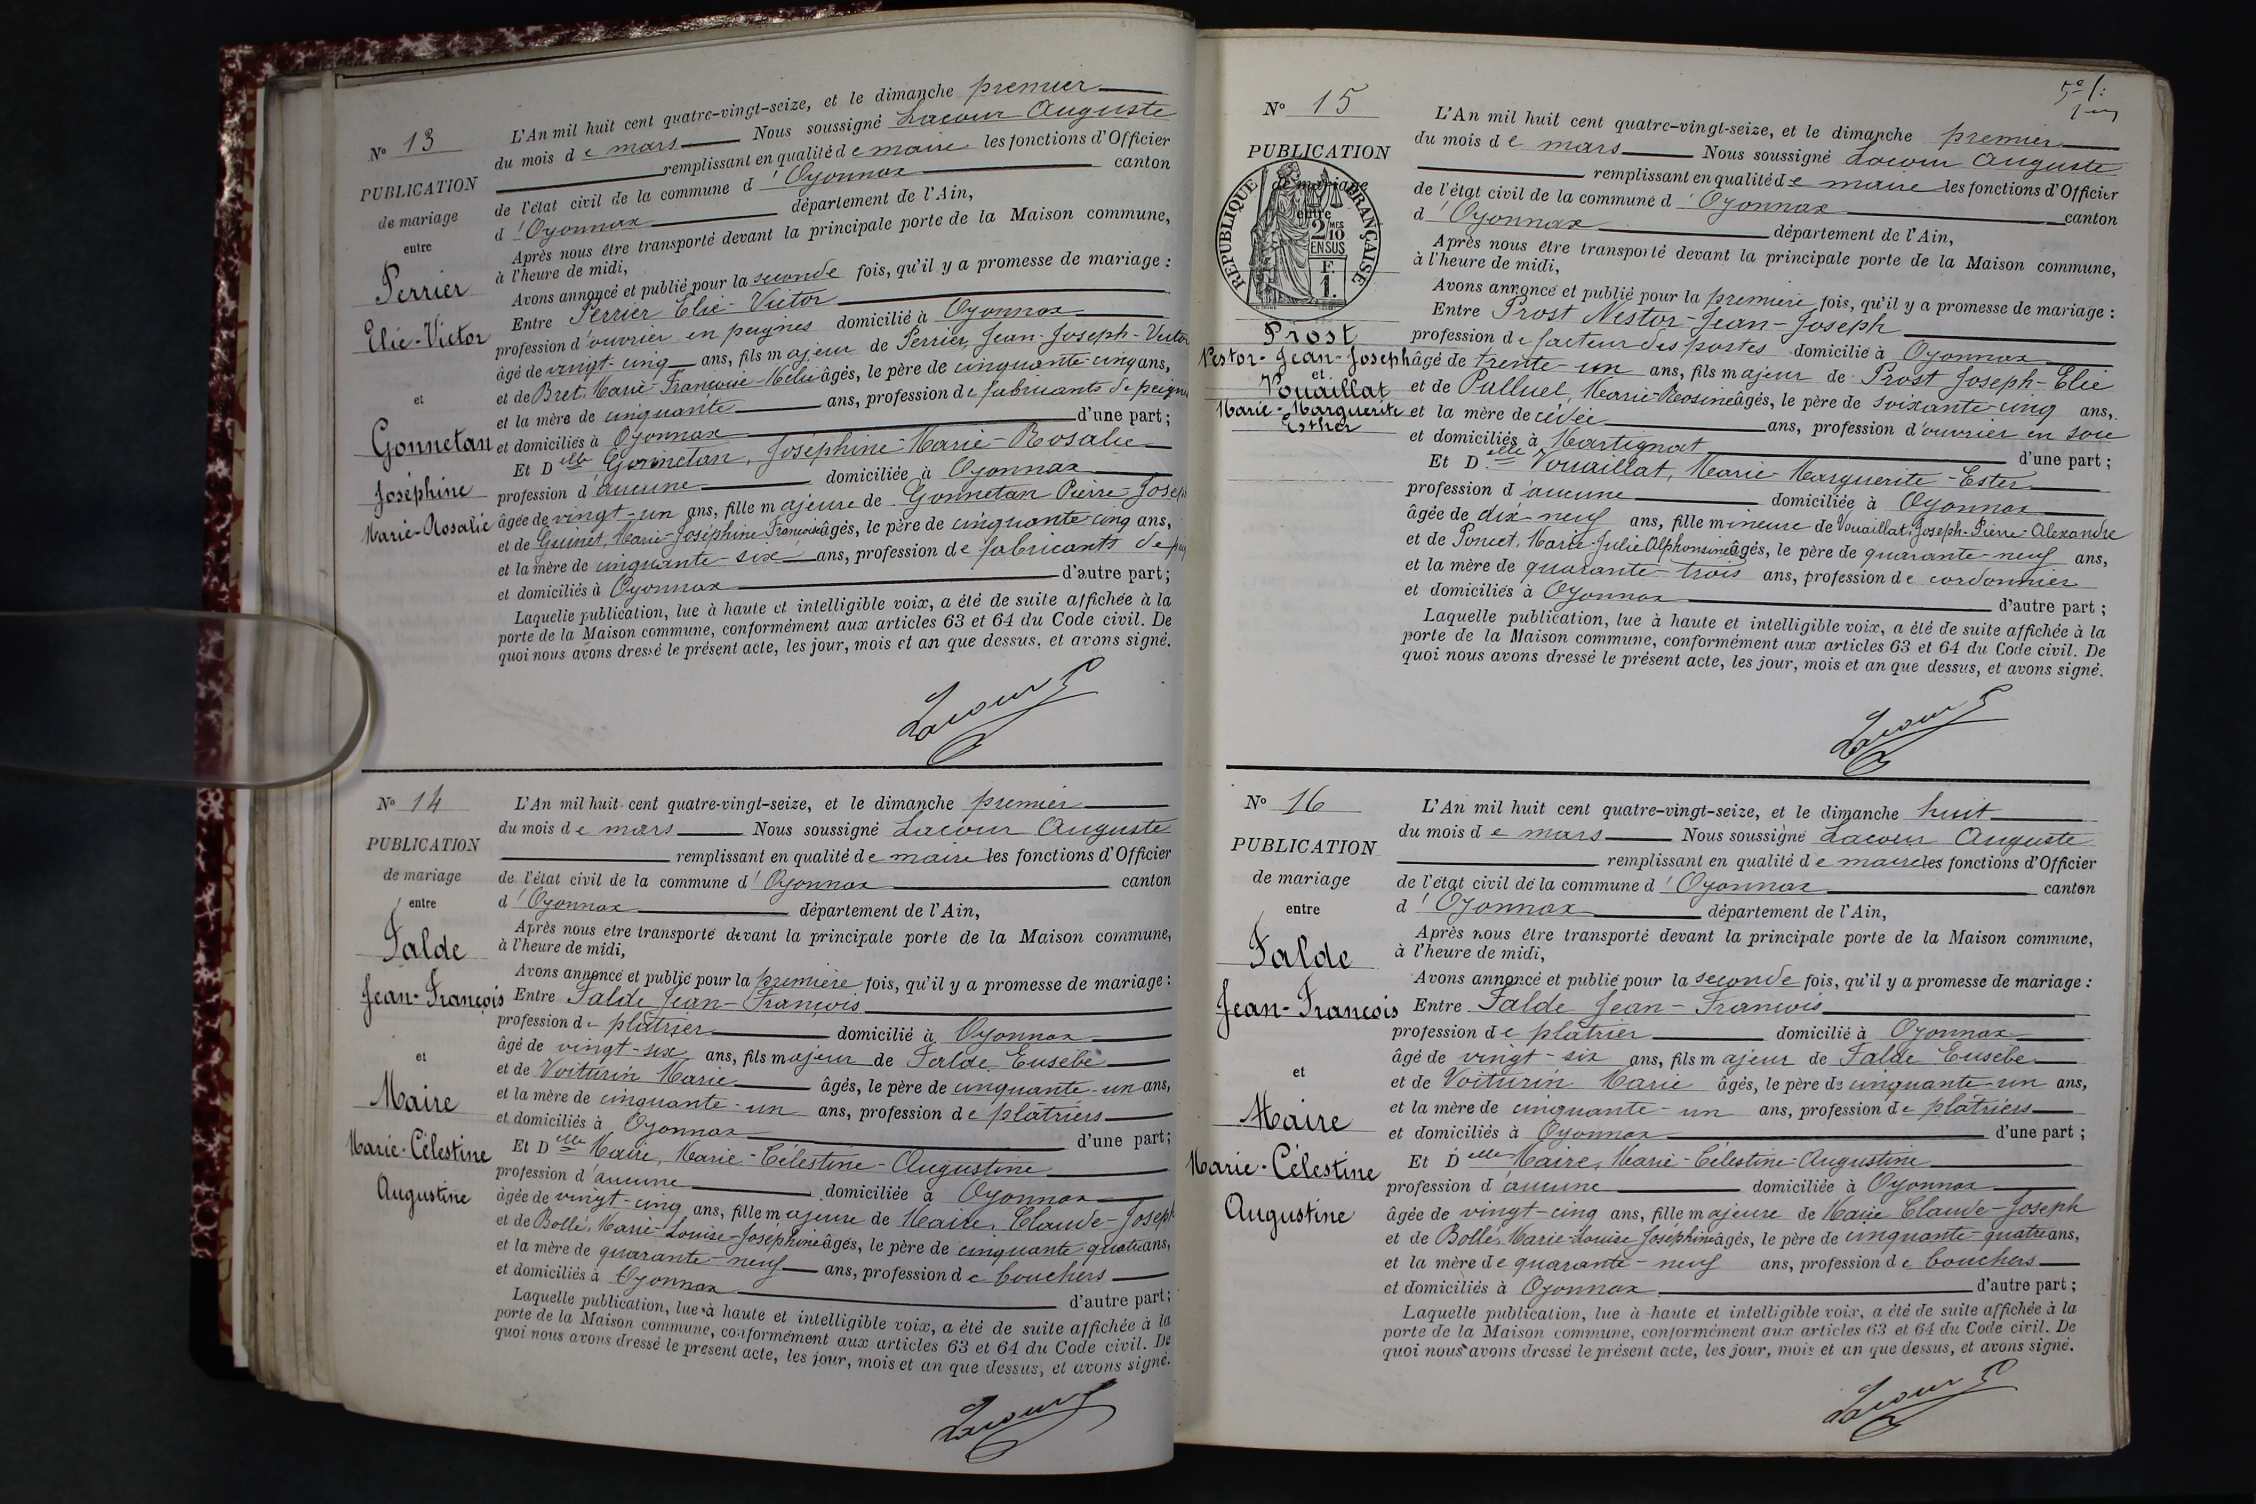 N° 13
PUBLICATION
de mariage
entre
Perrier
Elie-Victor
et
Gonnetan
Joséphine
Marie-Rosalie
L'An mil huit cent quatre-vingt-seize, et le dimanche premier
du mois de mars Nous soussigné Lacour Auguste
remplissant en qualité de maire les fonctions d'Officier
de l'état civil de la commune d'Oyonnax canton
d'Oyonnax département de l'Ain,
Après nous être transporté devant la principale porte de la Maison commune,
à l'heure de midi,
Avons annoncé et publié pour la seconde fois, qu'il y a promesse de mariage :
Entre Perrier Elie-Victor
profession d'ouvrier en peignes domicilié à Oyonnax
âgé de vingt-cinq ans, fils majeur de Perrier, Jean-Joseph-Victor
et de Bret, Marie-Françoise-Mélie âgés, le père de cinquante-cinq ans,
et la mère de cinquante ans, profession de fabricants de peignes
et domiciliés à Oyonnax d'une part ;
Et Delle Gonnetan, Joséphine-Marie-Rosalie
profession d'aucune domiciliée à Oyonnax
âgée de vingt-un ans, fille majeure de Gonnetan Pierre-Joseph
et de Marie-Joséphine-Françoise âgés, le père de cinquante-cinq ans,
et la mère de cinquante-six ans, profession de fabricants de
et domiciliés à Oyonnax d'autre part ;
Laquelle publication, lue à haute et intelligible voix, a été de suite affichée à la
porte de la Maison commune, conformément aux articles 63 et 64 du Code civil. De
quoi nous avons dressé le présent acte, les jour, mois et an que dessus, et avons signé.
Lacour
N° 14
PUBLICATION
de mariage
entre
Falde
Jean-François
et
Maire
Marie-Célestine
Augustine
L'An mil huit cent quatre-vingt-seize, et le dimanche premier
du mois de mars Nous soussigné Lacour Auguste
remplissant en qualité de maire les fonctions d'Officier
de l'état civil de la commune d'Oyonnax canton
d'Oyonnax département de l'Ain,
Après nous être transporté devant la principale porte de la Maison commune,
à l'heure de midi,
Avons annoncé et publié pour la première fois, qu'il y a promesse de mariage :
Entre Falde Jean-François
profession de plâtrier domicilié à Oyonnax
âgé de vingt-six ans, fils majeur de Falde Eusèbe
et de Voiturin Marie âgés, le père de cinquante-un ans,
et la mère de cinquante-un ans, profession de plâtriers
et domiciliés à Oyonnax d'une part ;
Et Delle Maire, Marie-Célestine-Augustine
profession d'aucune domiciliée à Oyonnax
âgée de vingt-cinq ans, fille majeure de Maire, Claude-Joseph
et de Bollé, Marie-Louise-Joséphine âgés, le père de cinquante quatre ans,
et la mère de quarante-neuf ans, profession de bouchers
et domiciliés à Oyonnax d'autre part ;
Laquelle publication, lue à haute et intelligible voix, a été de suite affichée à la
porte de la Maison commune, conformément aux articles 63 et 64 du Code civil. De
quoi nous avons dressé le présent acte, les jour, mois et an que dessus, et avons signé.
Lacour
N° 15
PUBLICATION
de mariage
entre
RÉPUBLIQUE FRANÇAISE
2/10 MES
EN SUS
F.
1.
Prost
Nestor-Jean-Joseph
et
Vouaillat
Marie-Marguerite
Esther
L'An mil huit cent quatre-vingt-seize, et le dimanche premier
du mois de mars Nous soussigné Lacour Auguste
remplissant en qualité de maire les fonctions d'Officier
de l'état civil de la commune d'Oyonnax canton
d'Oyonnax département de l'Ain,
Après nous être transporté devant la principale porte de la Maison commune,
à l'heure de midi,
Avons annoncé et publié pour la première fois, qu'il y a promesse de mariage :
Entre Prost Nestor-Jean-Joseph
profession de facteur des postes domicilié à Oyonnax
âgé de trente-un ans, fils majeur de Prost Joseph-Elie
et de Palluel, Marie-Rosine âgés, le père de soixante-cinq ans,
et la mère de cédée ans, profession d'ouvrier en soie
et domiciliés à Martignat d'une part ;
Et Delle Vouaillat, Marie-Marguerite-Ester
profession d'aucune domiciliée à Oyonnax
âgée de dix-neuf ans, fille mineure de Vouaillat, Joseph-Pierre-Alexandre
et de Poncet, Marie-Julie Alphonsine âgés, le père de quarante-neuf ans,
et la mère de quarante-trois ans, profession de cordonnier
et domiciliés à Oyonnax d'autre part ;
Laquelle publication, lue à haute et intelligible voix, a été de suite affichée à la
porte de la Maison commune, conformément aux articles 63 et 64 du Code civil. De
quoi nous avons dressé le présent acte, les jour, mois et an que dessus, et avons signé.
Lacour
N° 16
PUBLICATION
de mariage
entre
Falde
Jean-François
et
Maire
Marie-Célestine
Augustine
L'An mil huit cent quatre-vingt-seize, et le dimanche huit
du mois de mars Nous soussigné Lacour Auguste
remplissant en qualité de maire les fonctions d'Officier
de l'état civil de la commune d'Oyonnax canton
d'Oyonnax département de l'Ain,
Après nous être transporté devant la principale porte de la Maison commune,
à l'heure de midi,
Avons annoncé et publié pour la seconde fois, qu'il y a promesse de mariage :
Entre Falde Jean-François
profession de plâtrier domicilié à Oyonnax
âgé de vingt-six ans, fils majeur de Falde Eusèbe
et de Voiturin Marie âgés, le père de cinquante-un ans,
et la mère de cinquante-un ans, profession de plâtriers
et domiciliés à Oyonnax d'une part ;
Et Delle Maire, Marie-Célestine-Augustine
profession d'aucune domiciliée à Oyonnax
âgée de vingt-cinq ans, fille majeure de Maire Claude-Joseph
et de Bollé, Marie-Louise Joséphine âgés, le père de cinquante-quatre ans,
et la mère de quarante-neuf ans, profession de bouchers
et domiciliés à Oyonnax d'autre part ;
Laquelle publication, lue à haute et intelligible voix, a été de suite affichée à la
porte de la Maison commune, conformément aux articles 63 et 64 du Code civil. De
quoi nous avons dressé le présent acte, les jour, mois et an que dessus, et avons signé.
Lacour